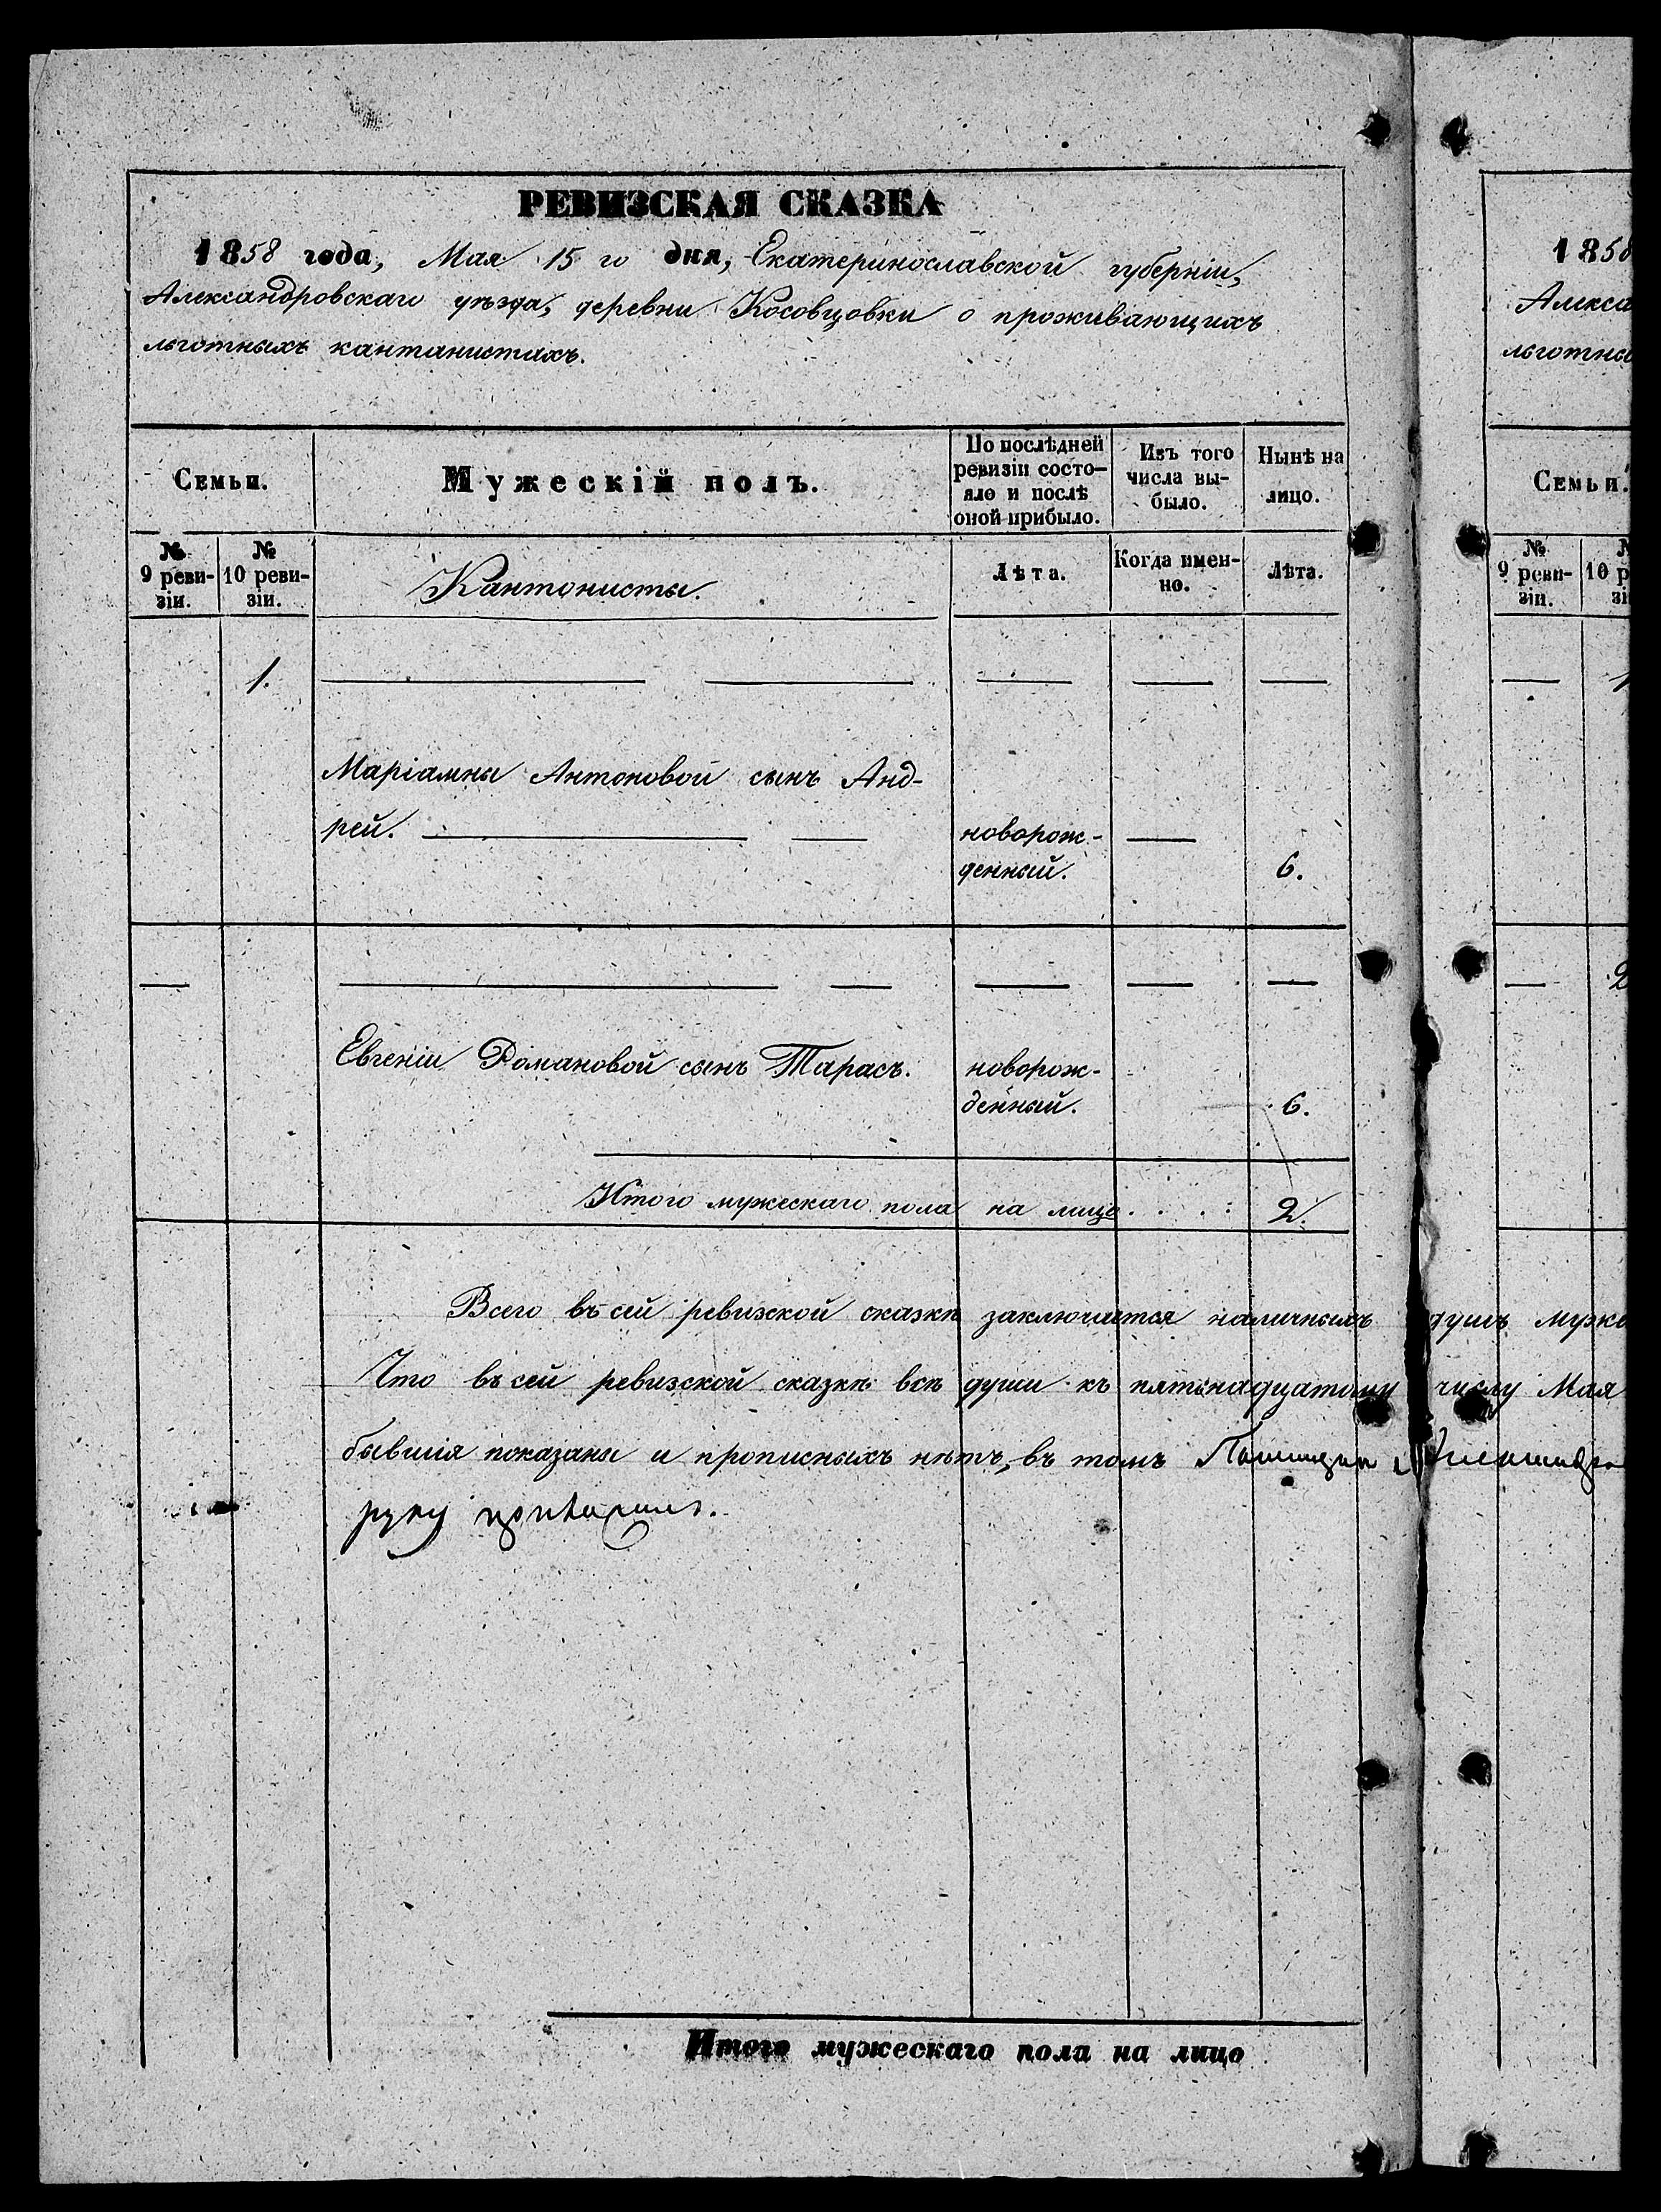 РЕВИЗСКАЯ СКАЗКА
1858 года, Мая 15 го дня, Екатеринославской губерніи,
Александровскаго уѣзда, деревни Косовцовки о проживающихъ
льготныхъ кантанистахъ.
Семьи.
Мужескій полъ.
По послѣдней
ревизіи состо-
яло и послѣ
оной прибыло.
Изъ того
числа вы-
было.
Нынѣ на
лицо.
№
9 реви-
зіи.
№
10 реви-
зіи.
Кантонисты.
Лѣта.
Когда имен-
но.
Лѣта.
1.
Маріамны Антоновой сынъ Анд-
рей.
новорож-
денный.
6.
Евгеніи Романовой сынъ Тарасъ.
новорож-
денный.
6.
Итого мужескаго пола на лицо . . . . 2.
Всего въ сей ревизской сказкѣ заключается наличныхъ душъ муже
Что въ сей ревизской сказкѣ всѣ души къ пятьнадцатому числу Мая
бывшія показаны и прописныхъ нѣтъ, въ томъ
руку приложилъ.
Итого мужескаго пола на лицо
1858
Алекса
льготны
Семьи.
№
9 реви-
зіи.
№
10 р
зі
1
2